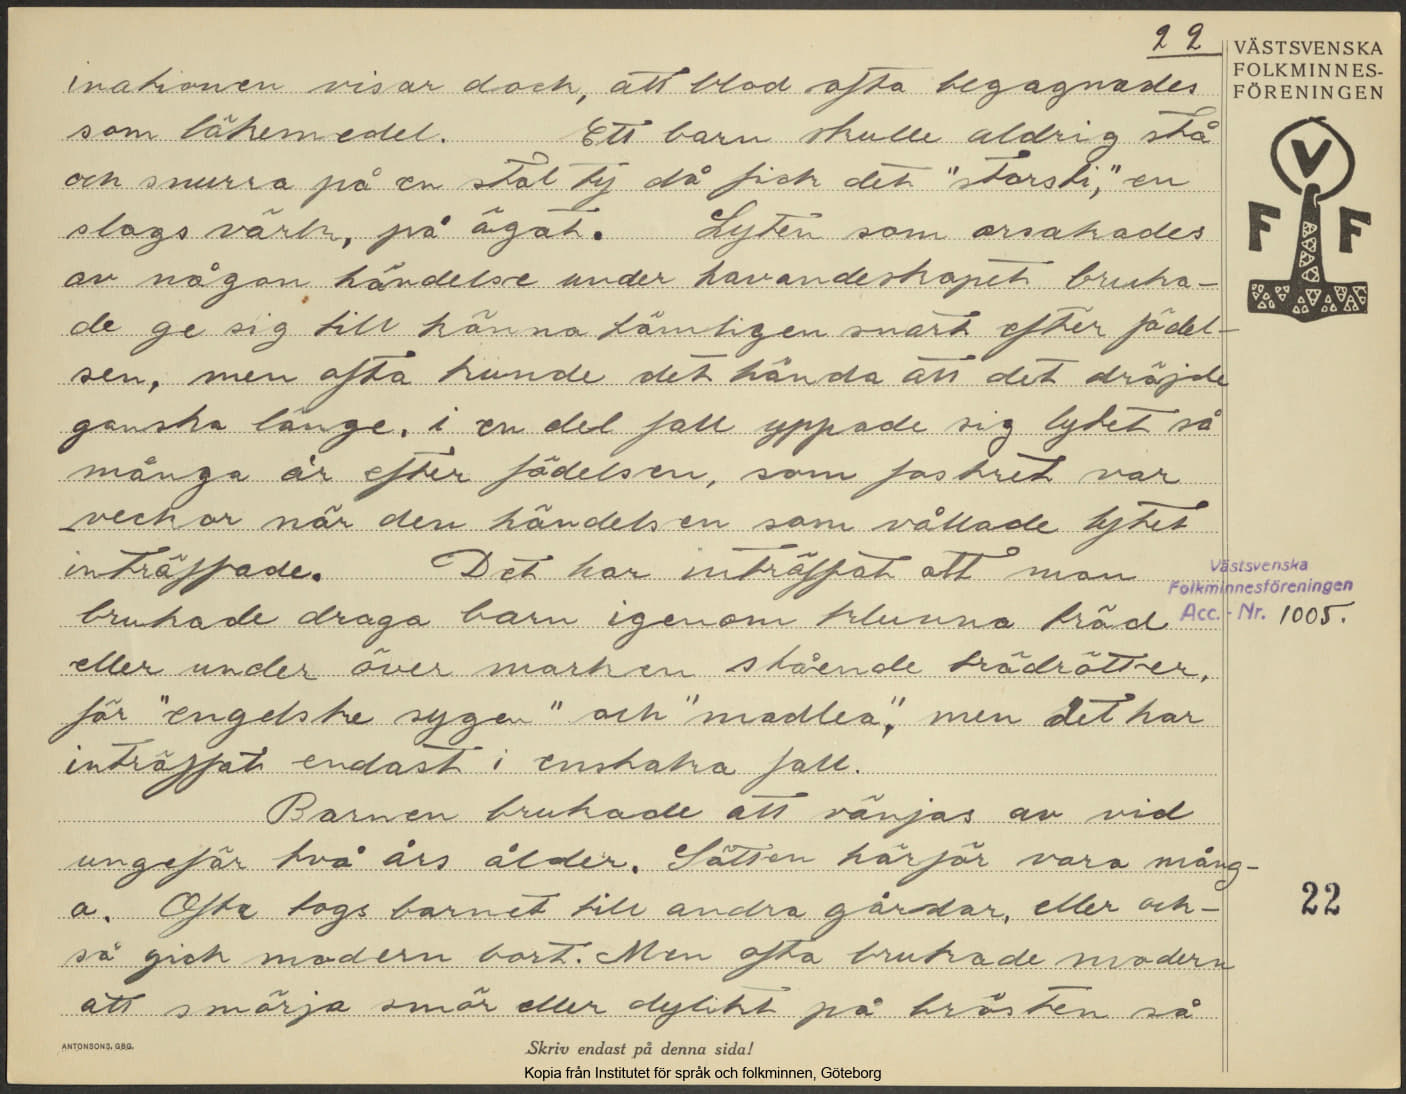 22
inationen visar dock, att blod ofta begagnades
som läkemedel. Ett barn skulle aldrig stå
och snurra på en stol ty då fick det "storsti," en
slags värk, på ögat. Lyten som orsakades
av någon händelse under havandeskapet bruka-
de ge sig till känna tämligen snart efter födel-
sen, men ofta kunde det hända att det dröjde
ganska länge, i en del fall yppade sig lytet så
många år efter födelsen, som fostret var
veckor när den händelsen som vållade lytet
inträffade. Det har inträffat att man
brukade draga barn igenom klunna träd
eller under över marken stående trädrötter,
för "engelske sygen" och "modlea", men det har
inträffat endast i enstaka fall.
Barnen brukade att vänjas av vid
ungefär två års ålder. Sätten härför vara mång-
a. Ofta togs barnet till andra gårdar, eller ock-
så gick modern bort. Men ofta brukade modern
att smörja smör eller dylikt på brösten så
VÄSTSVENSKA
FOLKMINNES-
FÖRENINGEN
V
F F
Västsvenska
Folkminnesföreningen
Acc. - Nr. 1005.
22
ANTONSONS, GBG.
Skriv endast på denna sida!
Kopia från Institutet för språk och folkminnen, Göteborg